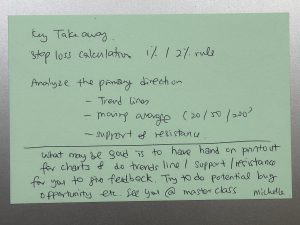 Key Take away.
Stop loss calculation 1% / 2% rule
Analyze the primary direction
- Trend lines
- moving average (20/50/200)
- support & resistance.
What may be good is to have hand on printout
for charts & do trends line / support / resistance
for you to give feedback. Try to do potential buy
opportunity etc. See you @ masterclass
michelle